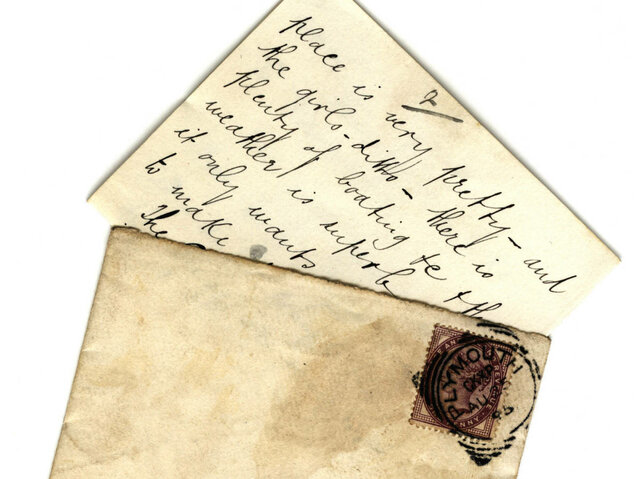 2
place is very pretty – and
the girls – ditto – there is
plenty of boating &c
weather is superb &
it only wants
to make
The
PLYMOUTH
AU